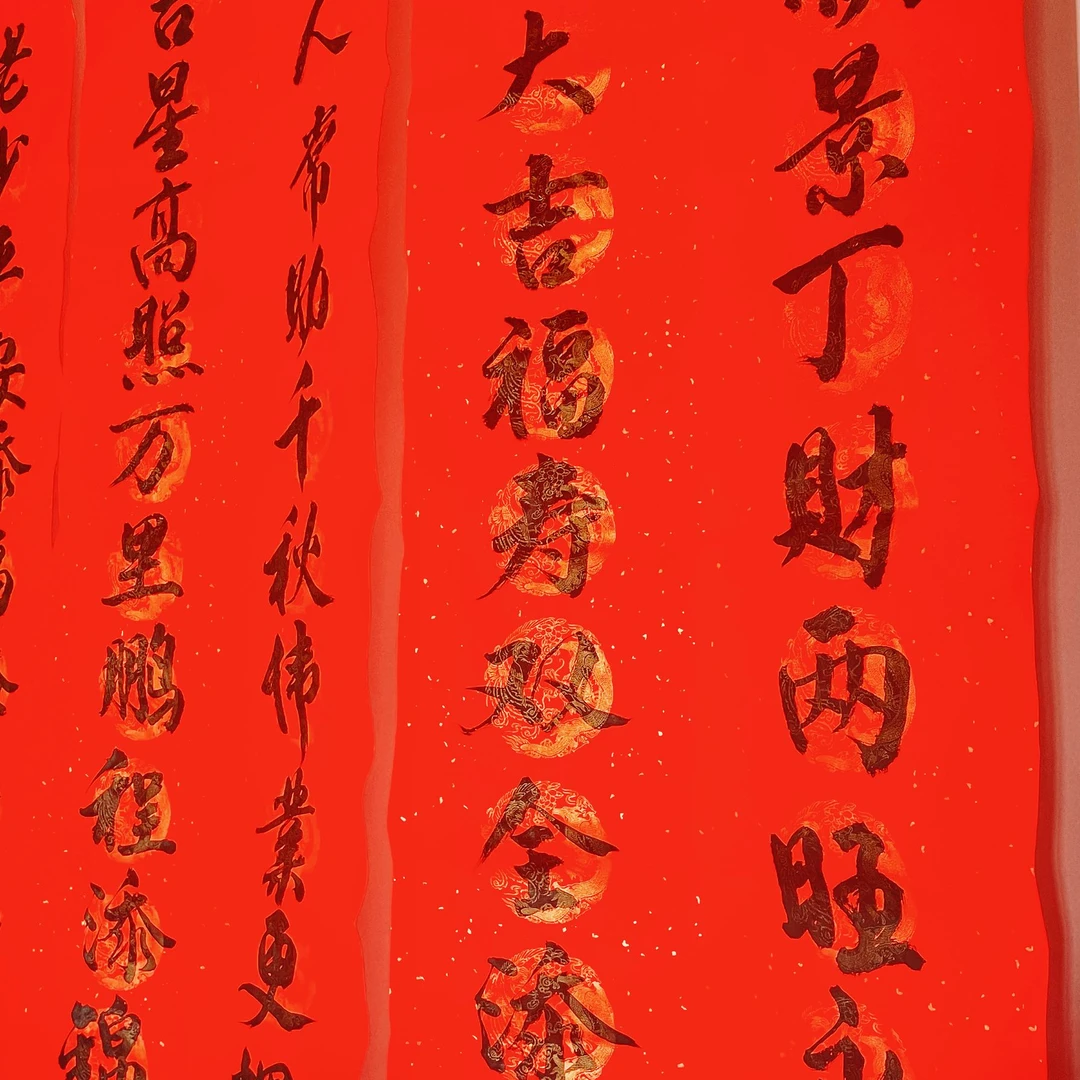 景丁財两旺
大吉福寿双全添
人常助千秋伟业更
吉星高照万里鹏程添锦
老少平安添福